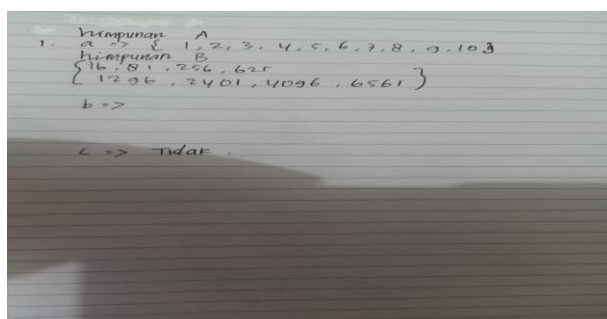 himpunan A
1. a => { 1, 2, 3, 4, 5, 6, 7, 8, 9, 10}
himpunan B
{16, 81, 256, 625
1296, 2401, 4096, 6561}
b =>
c => Tidak.